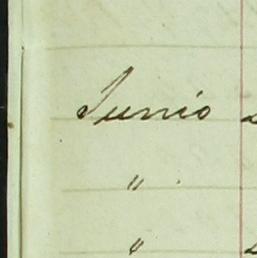 Junio
"
"